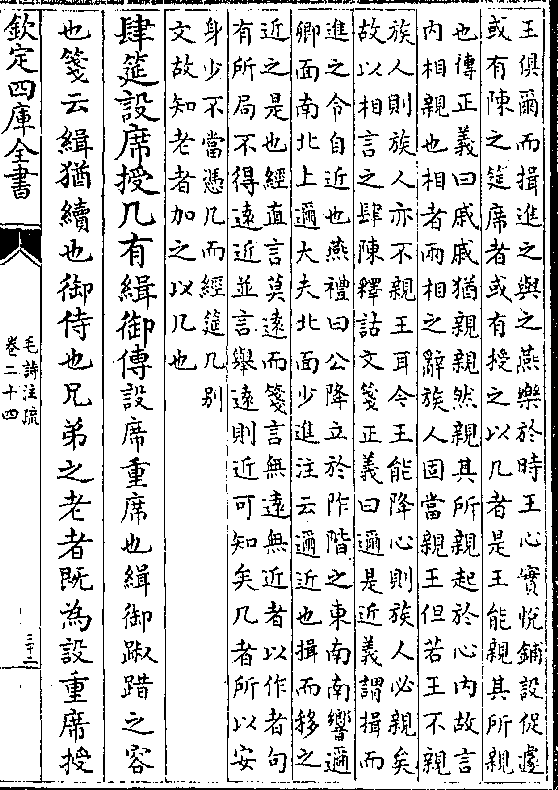 王俱爾而揖進之與之燕樂於時王心實悅鋪設促遽
或有陳之筵席者或有授之以几者是王能親其所親
也傳正義曰戚戚猶親親然親其所親起於心内故言
内相親也相者兩相之辭族人固當親王但若王不親
族人則族人亦不親王耳令王能降心則族人必親矣
故以相言之肆陳釋詁文箋正義曰邇是近義謂揖而
進之令自近也燕禮曰公降立於阼階之東南南嚮邇
卿面南北上邇大夫北面少進注云邇近也揖而移之
近之是也經直言莫遠而箋言無遠無近者以作者句
有所局不得遠近並言舉遠則近可知矣几者所以安
身少不當憑几而經筵几别
文故知老者加之以几也
肆筵設席授几有緝御傳設席重席也緝御踧踖之容
也箋云緝猶續也御侍也兄弟之老者既為設重席授
欽定四庫全書
毛詩注疏
卷二十四
三十二